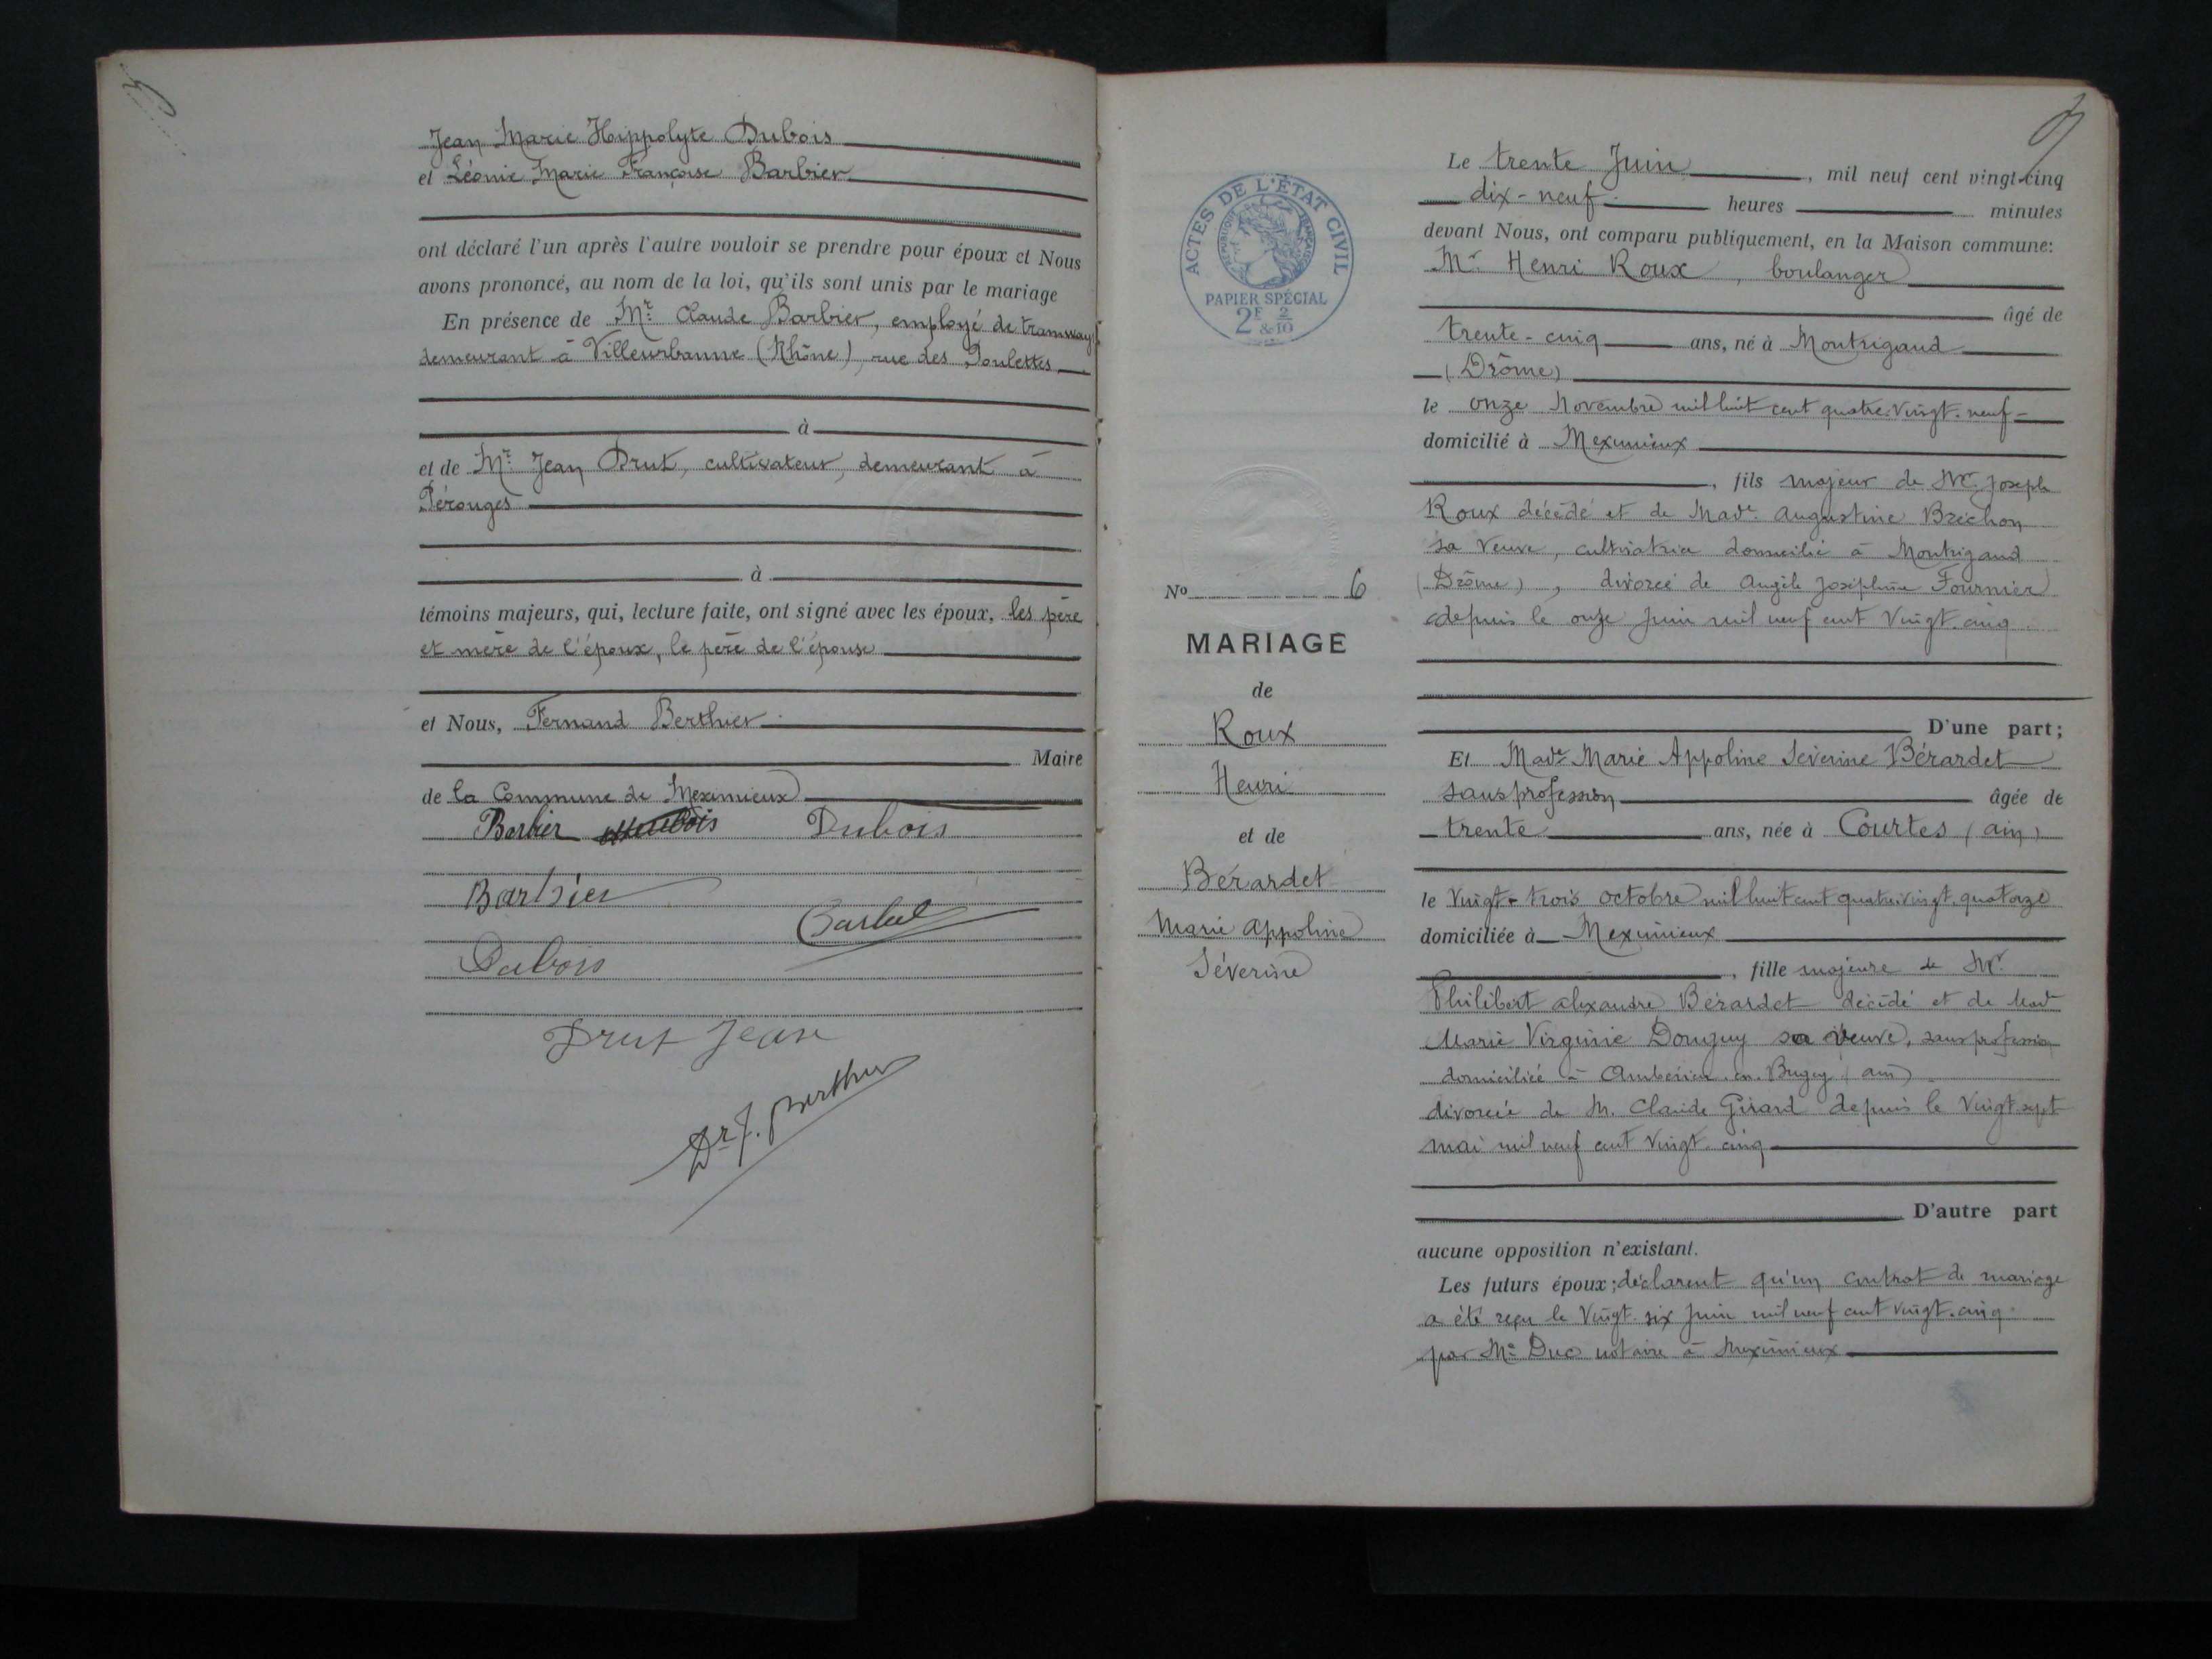 Jean Marie Hippolyte Dubois
et Léonie Marie Françoise Barbier
ont déclaré l'un après l'autre vouloir se prendre pour époux et Nous
avons prononcé, au nom de la loi, qu'ils sont unis par le mariage
En présence de Mr. Claude Barbier, employé de tramways
demeurant à Villeurbanne (Rhône), rue des Poulettes
à
et de Mr. Jean Drut, cultivateur, demeurant à
Pérouges
à
témoins majeurs, qui, lecture faite, ont signé avec les époux, les père
et mère de l'époux, le père de l'épouse
et Nous, Fernand Berthier
Maire
de la Commune de Meximieux
Barbier Dubois
Barbier
Dubois
Drut Jean
Dr F. Berthier
ACTES DE L'ÉTAT CIVIL
RÉPUBLIQUE FRANÇAISE
PAPIER SPÉCIAL
2F & 2/10
No 6
MARIAGE
de
Roux
Henri
et de
Bérardet
Marie Appoline
Séverine
Le trente Juin, mil neuf cent vingt-cinq
dix-neuf heures minutes
devant Nous, ont comparu publiquement, en la Maison commune:
Mr. Henri Roux, boulanger
âgé de
trente-cinq ans, né à Montrigaud
(Drôme)
le onze Novembre mil huit cent quatre-vingt-neuf
domicilié à Meximieux
, fils majeur de Mr. Joseph
Roux décédé et de Made. Augustine Bréchon
sa veuve, cultivatrice domicilié à Montrigaud
(Drôme), divorcé de Angèle Joséphine Fournier
depuis le onze juin mil neuf cent vingt-cinq
D'une part;
Et Made. Marie Appoline Séverine Bérardet
sans profession âgée de
trente ans, née à Courtes (ain)
le vingt-trois octobre mil huit cent quatre-vingt-quatorze
domiciliée à Meximieux
, fille majeure de Mr.
Philibert alexandre Bérardet décédé et de Made
Marie Virginie Donguy sa veuve, sans profession
domiciliée à Ambérieu-en-Bugey (ain)
divorcée de M. Claude Girard depuis le vingt-sept
mai mil neuf cent vingt-cinq
D'autre part
aucune opposition n'existant.
Les futurs époux; déclarent qu'un contrat de mariage
a été reçu le vingt-six juin mil neuf cent vingt-cinq
par Me Duc notaire à Meximieux